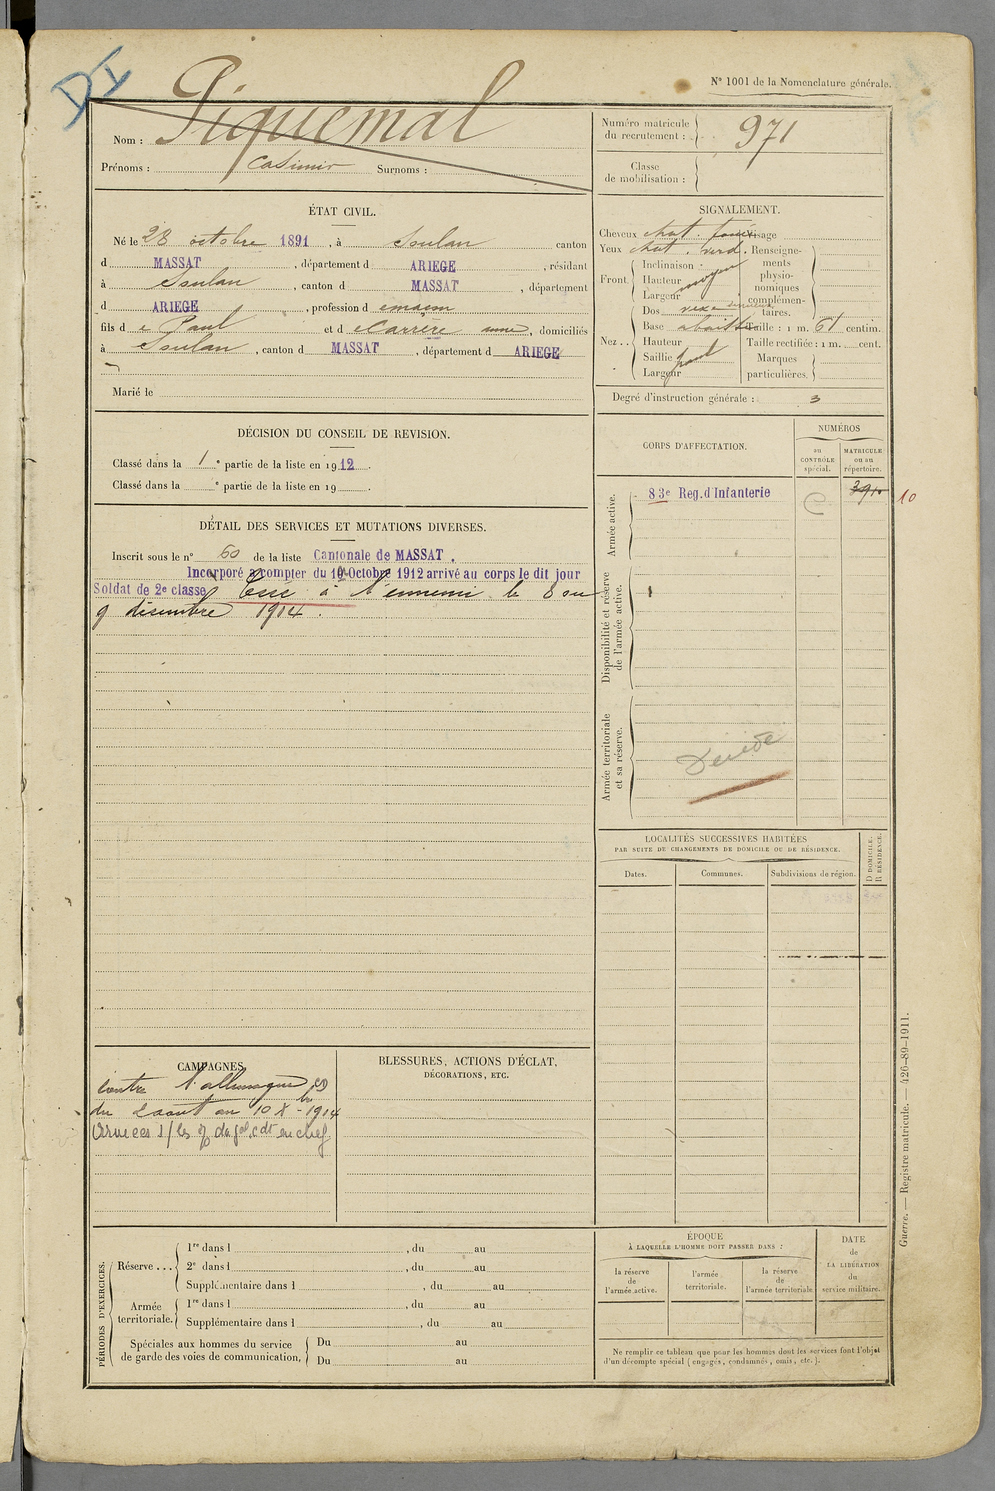 DI
N° 1001 de la Nomenclature générale.
Nom : Piquemal
Prénoms : Casimir Surnoms :
Numéro matricule du recrutement : 971
Classe de mobilisation :
ÉTAT CIVIL.
Né le 28 octobre 1891, à Soulan canton
d MASSAT, département d ARIEGE, résidant
à Soulan, canton d MASSAT, département
d ARIEGE, profession d maçon
fils d e Paul et d e Carrère anne, domiciliés
à Soulan, canton d MASSAT, département d ARIEGE
Marié le
SIGNALEMENT.
Cheveux chat. foncé visage
Yeux chat. verd. Renseigne-
ments
physio-
nomiques
complémen-
taires.
Front. Inclinaison
Hauteur moyen
Largeur
Nez .. Dos
Base
Hauteur
Saillie
Largeur
Taille : 1 m. 61 centim.
Taille rectifiée : 1 m. cent.
Marques
particulières.
Degré d'instruction générale : 3
DÉCISION DU CONSEIL DE REVISION.
Classé dans la 1e partie de la liste en 1912.
Classé dans la e partie de la liste en 19 .
DÉTAIL DES SERVICES ET MUTATIONS DIVERSES.
Inscrit sous le n° 60 de la liste Cantonale de MASSAT.
Incorporé à compter du 10 Octobre 1912 arrivé au corps le dit jour
Soldat de 2e classe. Tué à l'ennemi le 8 ou
9 décembre 1914.
CORPS D'AFFECTATION.
NUMÉROS
au
CONTRÔLE
spécial.
MATRICULE
ou au
répertoire.
Armée active.
83e Reg. d'Infanterie
10
Disponibilité et réserve
de l'armée active.
Armée territoriale
et sa réserve.
LOCALITÉS SUCCESSIVES HABITÉES
PAR SUITE DE CHANGEMENTS DE DOMICILE OU DE RÉSIDENCE.
Dates. Communes. Subdivisions de région. D DOMICILE.
R RÉSIDENCE.
CAMPAGNES.
Contre l'allemagne
du 2 août au 10 Xbre 1914
BLESSURES, ACTIONS D'ÉCLAT,
DÉCORATIONS, ETC.
PÉRIODES D'EXERCICES.
Réserve ... 1re dans l , du au
2e dans l , du au
Supplémentaire dans l , du au
Armée
territoriale. 1re dans l , du au
Supplémentaire dans l , du au
Spéciales aux hommes du service
de garde des voies de communication. Du au
Du au
ÉPOQUE
À LAQUELLE L'HOMME DOIT PASSER DANS :
la réserve
de
l'armée active.
l'armée
territoriale.
la réserve
de
l'armée territoriale.
DATE
de
LA LIBÉRATION
du
service militaire.
Ne remplir ce tableau que pour les hommes dont les services font l'objet
d'un décompte spécial (engagés, condamnés, omis, etc.).
Guerre. — Registre matricule. — 426-89-1911.